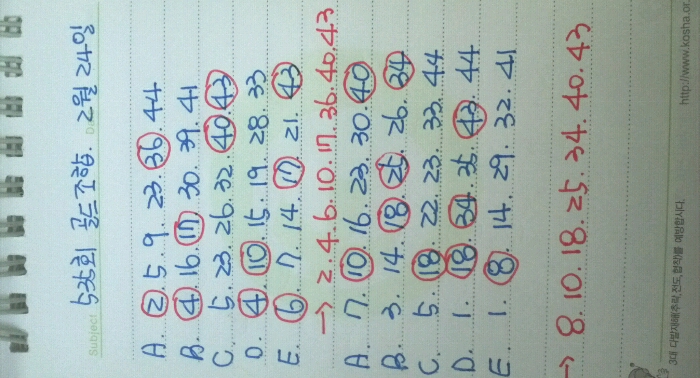 Subject 535회 골드조합. D. 2월 24일
A. 2. 5. 9 23. 36. 44
B. 4. 16. 17. 30. 39. 41
C. 5. 23 26. 32. 40. 43
D. 4. 10. 15. 19. 28. 33
E. 6. 7. 14. 17. 21. 43
→ 2. 4. 6. 10. 17. 36. 40. 43
A. 7. 10. 16. 23. 30. 40
B. 3. 14. 18. 25. 26. 34
C. 5. 18 22. 23. 33. 44
D. 1. 18. 34. 35. 43. 44
E. 1. 8. 14. 29. 32. 41
→ 8. 10. 18. 25. 34. 40. 43
3대 다발재해추락, 전도, 협착를 예방합시다.
http://www.kosha.or.